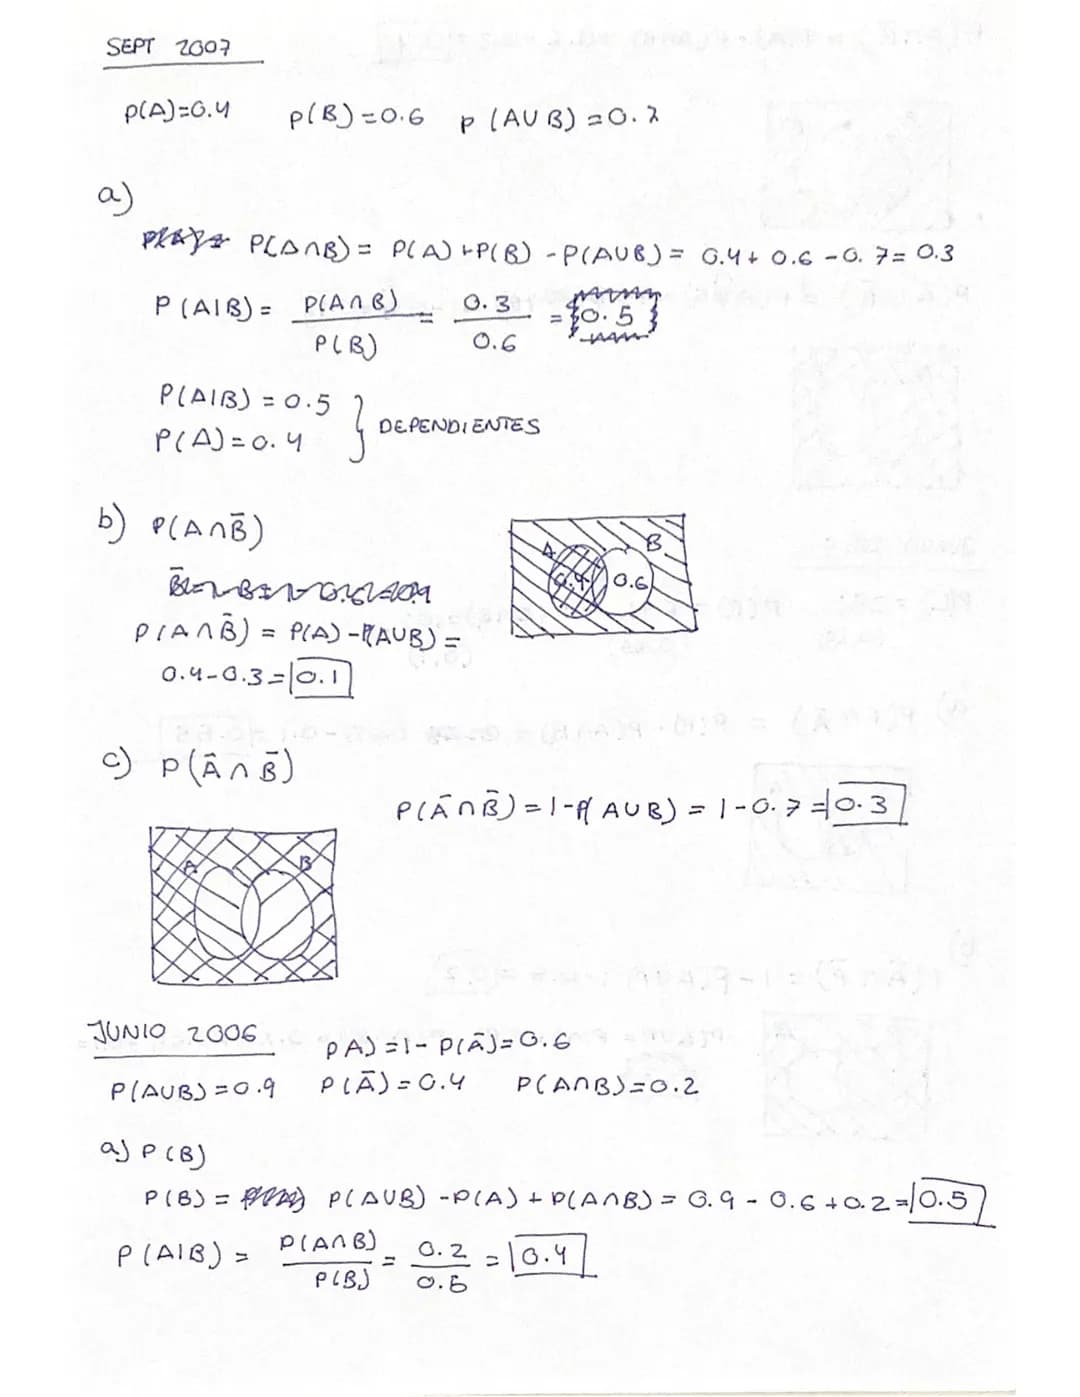 SEPT 2007
P(A)=0.4 P(B)=0.6 P(AUB)=0.7
a)
P(A∩B) = P(A)+P(B)-P(AUB) = 0.4+0.6-0.7=0.3
P(A|B) = P(A∩B)/P(B) = 0.3/0.6 = 0.5
P(A|B) = 0.5
P(A) = 0.4 } DEPENDIENTES
b) P(A∩B̄)
A B
0.4 0.6
P(A∩B̄) = P(A)-P(AUB) =
0.4-0.3=0.1
c) P(Ā∩B̄)
P(Ā∩B̄) = 1-P(AUB) = 1-0.7=0.3
A B
JUNIO 2006
PA)=1-P(Ā)=0.6
P(AUB)=0.9 P(Ā)=0.4 P(A∩B)=0.2
a) P(B)
P(B) = P(AUB)-P(A)+P(A∩B) = 0.9-0.6+0.2=0.5
P(A|B) = P(A∩B)/P(B) = 0.2/0.5 = 0.4